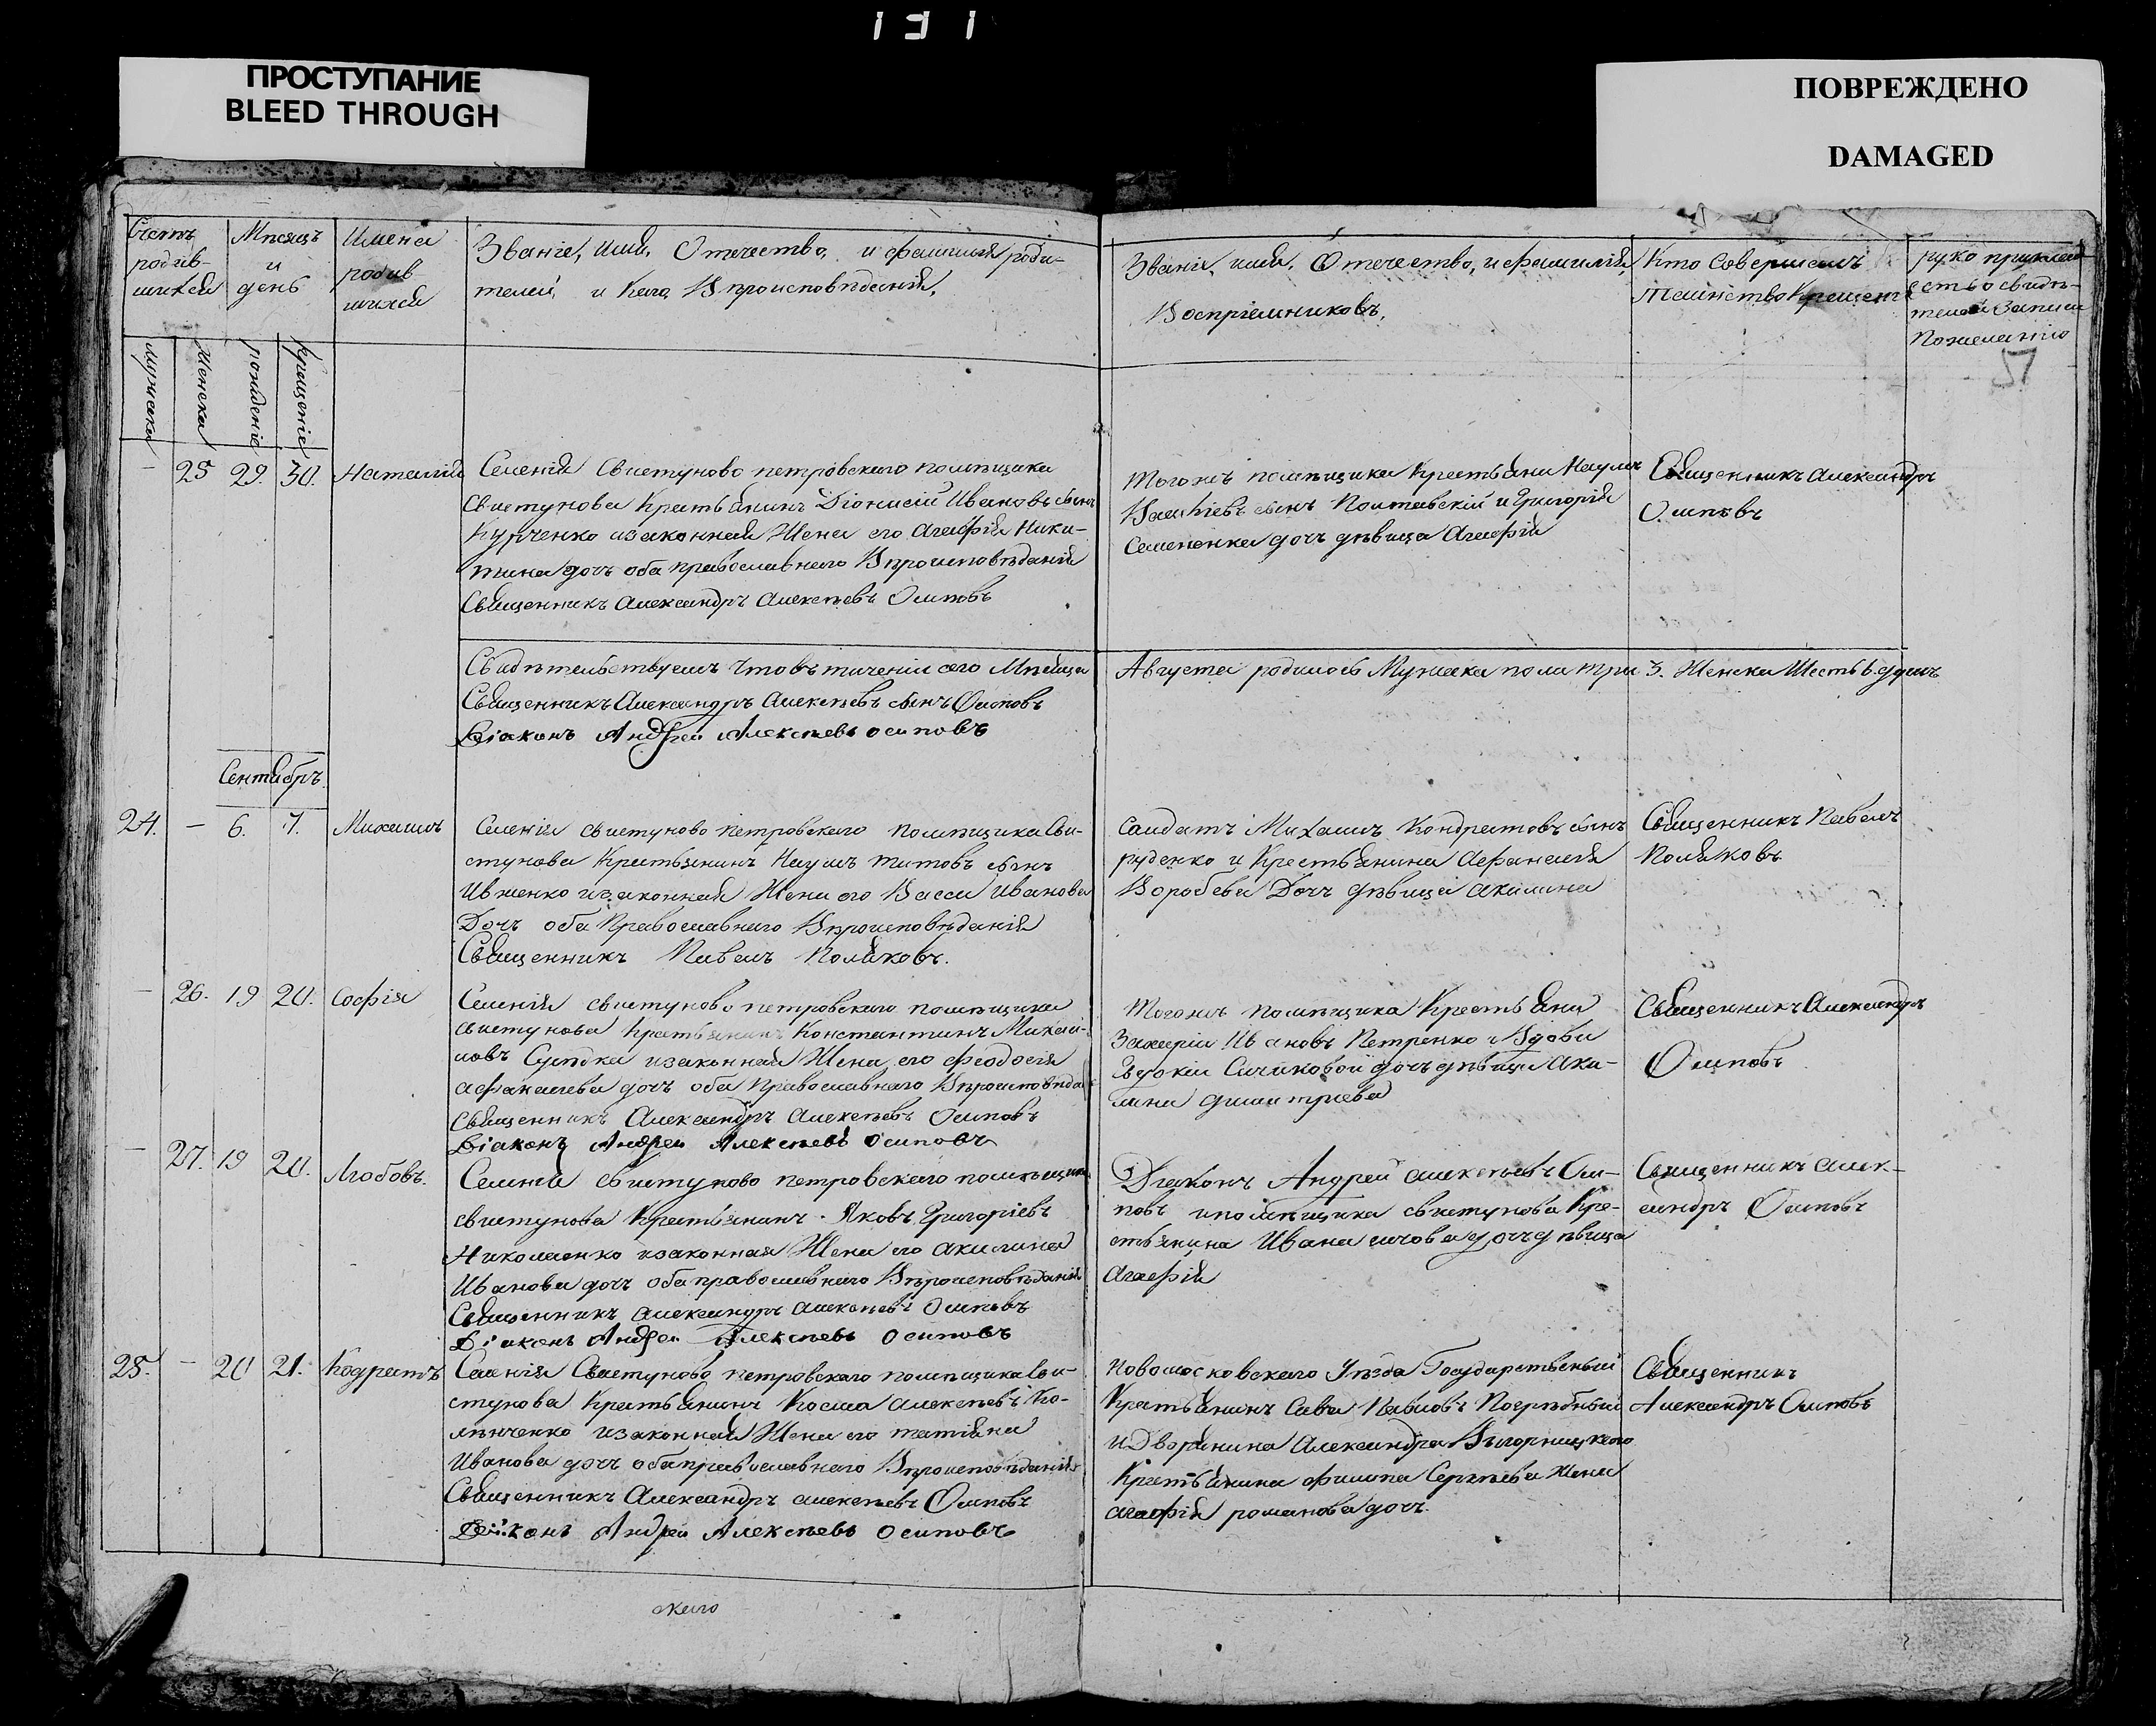 131
ПРОСТУПАНИЕ
BLEED THROUGH
ПОВРЕЖДЕНО
DAMAGED
Счетъ родив-шихся
Мѣсяцъ и день
Имена родив-шихся
Званіе, имя, Отечество, и фамилия роди-
телей, и Какого Вѣроисповѣданія,
Званіе, имя, Отечество, и фамилія
Воспріемниковъ,
Кто Совершалъ
таинство Крещенія
руко прикладст
ство свидѣ-
телей Записи
Пожеланію
57
Мужеска
Женска
рожденіе
крещеніе
25 29. 30. Наталія
Селенія Свистуново петровскаго помѣщика
Свистунова Крестьянинъ Діонисій Ивановъ сынъ
Курченко изаконная Жена его Агафія Ники-
тина дочь оба православнаго Вѣроисповѣданія
Священникъ Александръ Алексѣевъ Осиповъ
Тогожъ помѣщика Крестьяни Наумъ
сынъ Полтавскій и Григорія
Семененка дочь дѣвица Агафія
Священникъ Александръ
Осиповъ
Свидѣтельствуемъ Что въ теченіи сего Мѣсяца
Августа родилось Мужеска пола три 3. Женска Шесть 6. душъ
Священникъ Александръ Алексѣевъ сынъ Осиповъ
Діаконъ Андреи Алексѣевъ осиповъ
Сентябръ
24. — 6. 7. Михаилъ
Селенія свистуново петровскаго помѣщика Сви-
стунова Крестьянинъ Наумъ Титовъ сынъ
Ивженко изаконная Жена его Васса Иванова
Дочь оба Православнаго Вѣроисповѣданія
Священникъ Павелъ Поляковъ.
Салдатъ Михаилъ Кондратовъ сынъ
руденко и Крестьянина Афанасія
Воробева Дочь дѣвица акилина
Священникъ Павелъ
Поляковъ
— 26. 19 20. Софія
Селенія свистуново петровскаго помѣщика
свистунова Крестьянинъ Константинъ Михаи-
ловъ изаконная Жена его феодосія
афанасиева дочь оба Православнаго Вѣроисповѣда
священникъ Александръ Алексѣевъ Осиповъ
Діаконъ Андреи Алексѣевъ Осиповъ
Тогожъ помѣщика Крестьяни
Захарій Ивановъ Петренко и Вдовы
дочь дѣвица Аки-
лина димитриева
Священникъ Александръ
Осиповъ
— 27. 19 20. Любовь.
Селенія Свистуново петровскаго помѣщика
свистунова Крестьянинъ Яковъ Григоріевъ
Николаенко изаконная Жена его акилина
Иванова дочь оба православнаго Вѣроисповѣданія
Священникъ александръ алексѣевъ Осиповъ
Діаконъ Андреи Алексѣевъ осиповъ
Діаконъ Андрей алексѣевъ Оси-
повъ ипомѣщика свистунова Кре-
стьянина Ивана дочь дѣвица
Агафія
Священникъ алек-
сандръ Осиповъ
25. — 20 21. Кодратъ
Селенія Свистуново петровскаго помѣщика Сви-
стунова Крестьянинъ Косма алексѣевъ Ко-
изаконная Жена его татіяна
Иванова дочь оба православнаго Вѣроисповѣданія
Священникъ Александръ алексѣевъ Осиповъ
Діаконъ Андреи Алексѣевъ осиповъ
Новомосковскаго Уѣзда Государственый
Крестьянинъ Сава Павловъ Погрѣбный
и Дворянина Александра
Крестьянина филипа Сергѣева Жена
агафія романова дочь.
Священникъ
Александръ Осиповъ
скаго